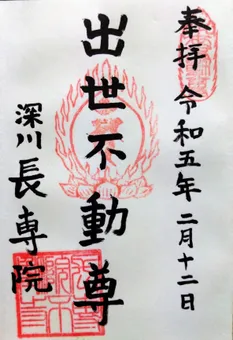 奉拝 令和五年二月十二日
出世不動尊
深川 長専院